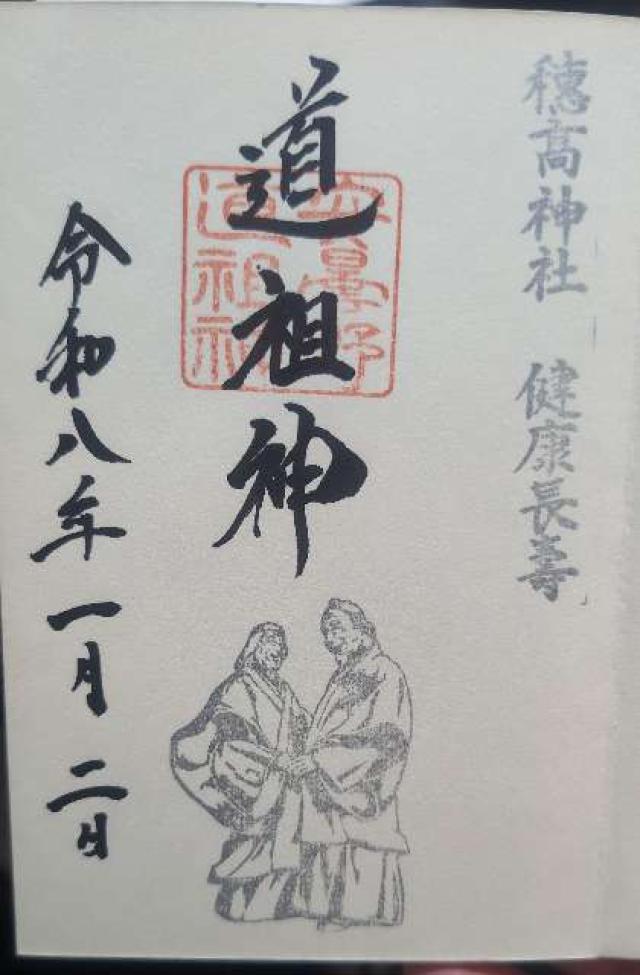 穂高神社 健康長寿
道祖神
安曇野
道祖神
令和八年一月二日